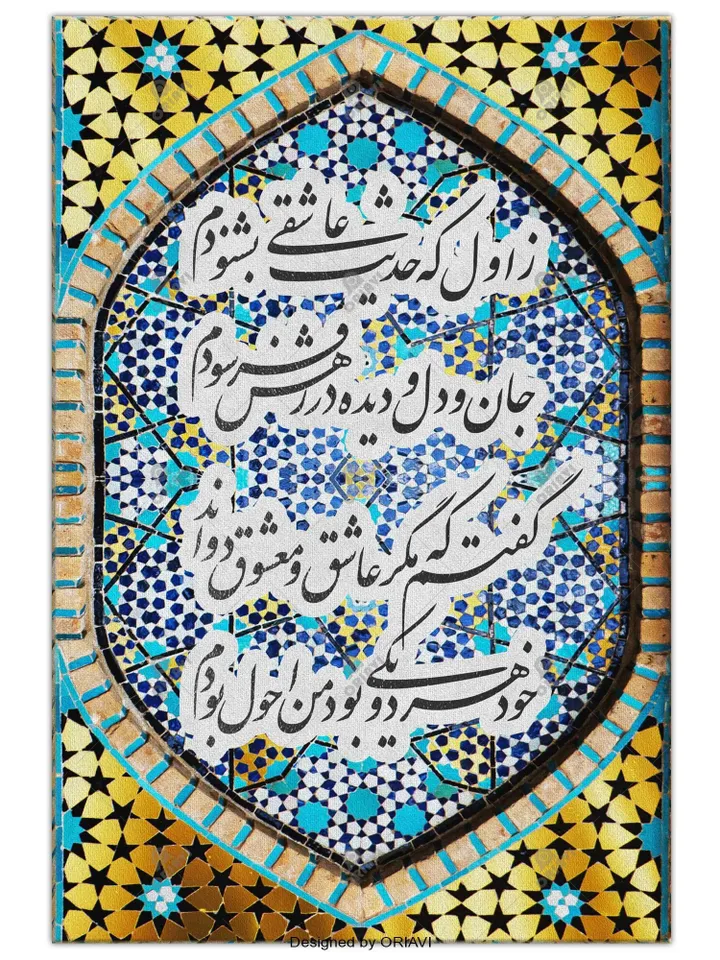 ز اول که حدیث عاشقی بشنودم
جان و دل و دیده در رهش فرسودم
گفتم که مگر عاشق و معشوق دواند
خود هر دو یکی بود من احول بودم
Designed by ORIAVI